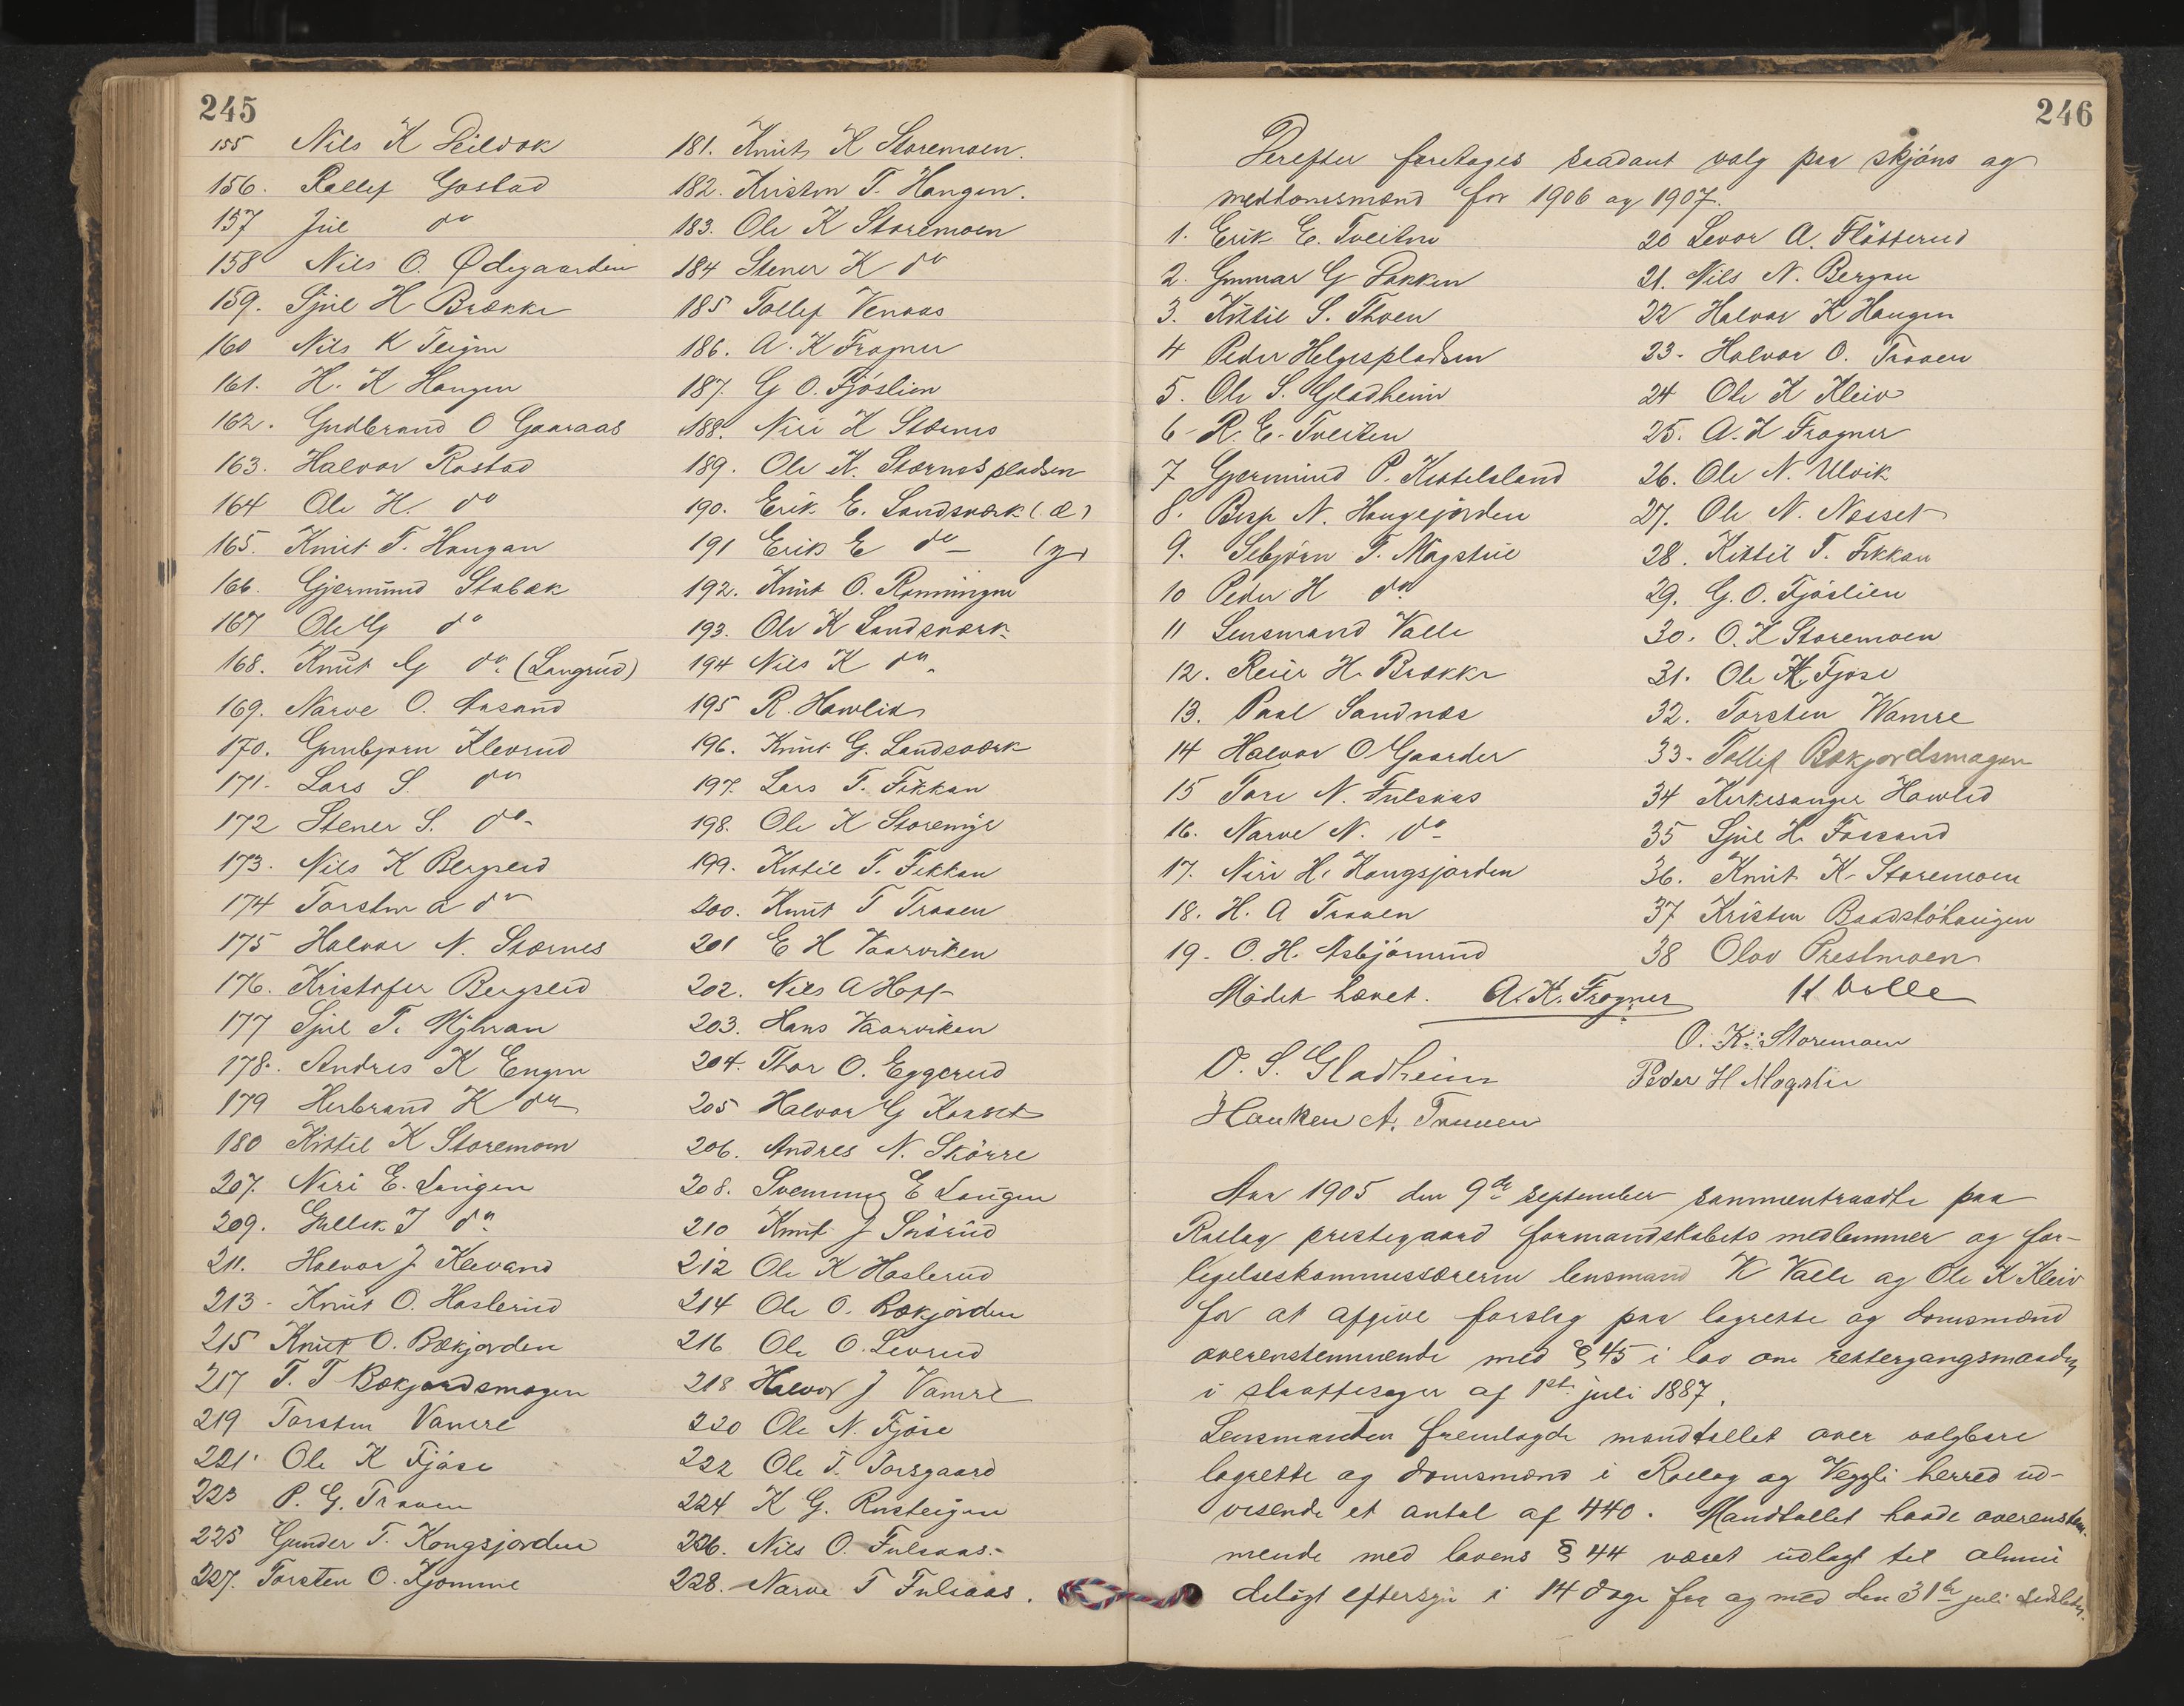 245
155 Nils K Deildok
156. Rollef Gostad
157 Jul do
158 Nils O. Ødegaarden
159. Sjul H Brække
160 Nils K Teigen
161. H. K Haugen
162. Gudbrand O Gaaraas
163. Halvor Rostad
164 Ole H. do
165. Knut T. Haugan
166. Gjermund Stabæk
167 Ole G do
168. Knut G do. (Langrud)
169. Narve O. Aasand
170. Gunbjørn Klevrud
171. Lars S. do
172 Stener S. do.
173. Nils K Bergseid
174 Torsten A do
175 Halvor N. Stærnes
176. Kristofer Bergseid
177 Sjul T.
178. Andres K Engen
179 Herbrand K do
180 Kittil K Storemoen
207. Niri E. Langen
209. Gullek J do.
211. Halvor J Klevand
213. Knut O. Haslerud
215 Knut O. Bækjorden
217 T. T Bækjordsmogen
219 Torsten Vamre
221. Ole K Fjøse
223 P. G. Traaen
225 Gunder T. Kongsjorden
227. Torsten O. Kjomme
181. Knut K Storemoen.
182. Kristen T. Haugen.
183. Ole K Storemoen
184 Stener K do
185 Tollef Venaas
186. A. K Frogner
187. G O. Fjøslien
188. Niri K Stærnes
189. Ole K. Stærnespladsen
190. Erik E. Landsværk (æ)
191 Erik E do (y)
192. Knut O. Ronningen
193. Ole K Landsværk
194 Nils K do.
195 R. Hawlid
196. Knut G. Landsværk
197. Lars T. Fikkan
198. Ole K Storemyr
199. Kittil T. Fikkan
200. Knut T Traaen
201 E H Vaarviken
202. Nils A Hoff
203. Hans Vaarviken
204. Thor O. Eggerud
205 Halvor G Kasset
206. Andres N. Skårre
208. Svenung E Langen
210 Knut J Snörud
212 Ole K Haslerud
214 Ole O. Bækjorden
216 Ole O. Levrud
218 Halvor J Vamre
220 Ole N. Fjøse
222 Ole T. Torsgaard
224 K G. Rusteigen
226. Nils O. Fulsaas.
228. Narve T Fulsaas.
246
Derefter foretages saadant valg paa skjøns og
meddomsmænd for 1906 og 1907.
1. Erik E. Tveiten
2. Gunnar G Bakken
3. Kittil S. Thoen
4 Peder Helgespladsen
5. Ole S. Gladheim
6. R. E. Tveiten
7 Gjermund P. Kittelsland
8. Besp N. Haugejorden
9. Sebjørn T. Mogstue
10 Peder H do
11 Lensmand Valle
12. Reier H. Brække
13. Paal Sandnæs
14 Halvor O Gaarder
15 Tore N. Fulsaas
16. Narve N. do
17. Niri H. Kongsjorden
18. H. A Traaen
19. O. H. Asbjørnrud
20 Levor A. Fløtterud
21. Nils N. Bergan
22 Halvor K Haugen
23. Halvor O. Traaen
24 Ole K Kleiv
25. A. K Frogner
26. Ole N. Ulvik
27. Ole N. Næsset
28. Kittil T. Fikkan
29. G. O. Fjøslien
30. O. K Storemoen
31. Ole K. Fjøse
32. Torsten Wamre
33. Tollef Bækjordsmogen
34 Kirkesanger Hawlid
35 Sjul H. Fossand
36. Knut K. Storemoen
37 Kristen Baadstöhaugen
38 Olav Prestmoen
Mödet hævet. A. K. Frogner K Valle
O. K. Storemoen
O. S. Gladheim Peder H Mogstu
Haaken A. Traaen
Aar 1905 den 9de september sammentraadte paa
Rollag prestegaard formandskabets medlemmer og for-
ligelseskommissærerne lensmand K Valle og Ole K Kleiv
for at afgive forslag paa lagrette og domsmænd
overenstemmende med § 45 i lov om rettergangsmaaden
i straffesager af 1ste juli 1887.
Lensmanden fremlagde mandtallet over valgbare
lagrette og domsmænd i Rollag og Veggli herred ud-
visende et antal af 440. Mandtallet havde overenstem-
mende med lovens § 44 været udlagt til almin
deligt eftersyn i 14 dage fra og med den 31te juli sidstleden.